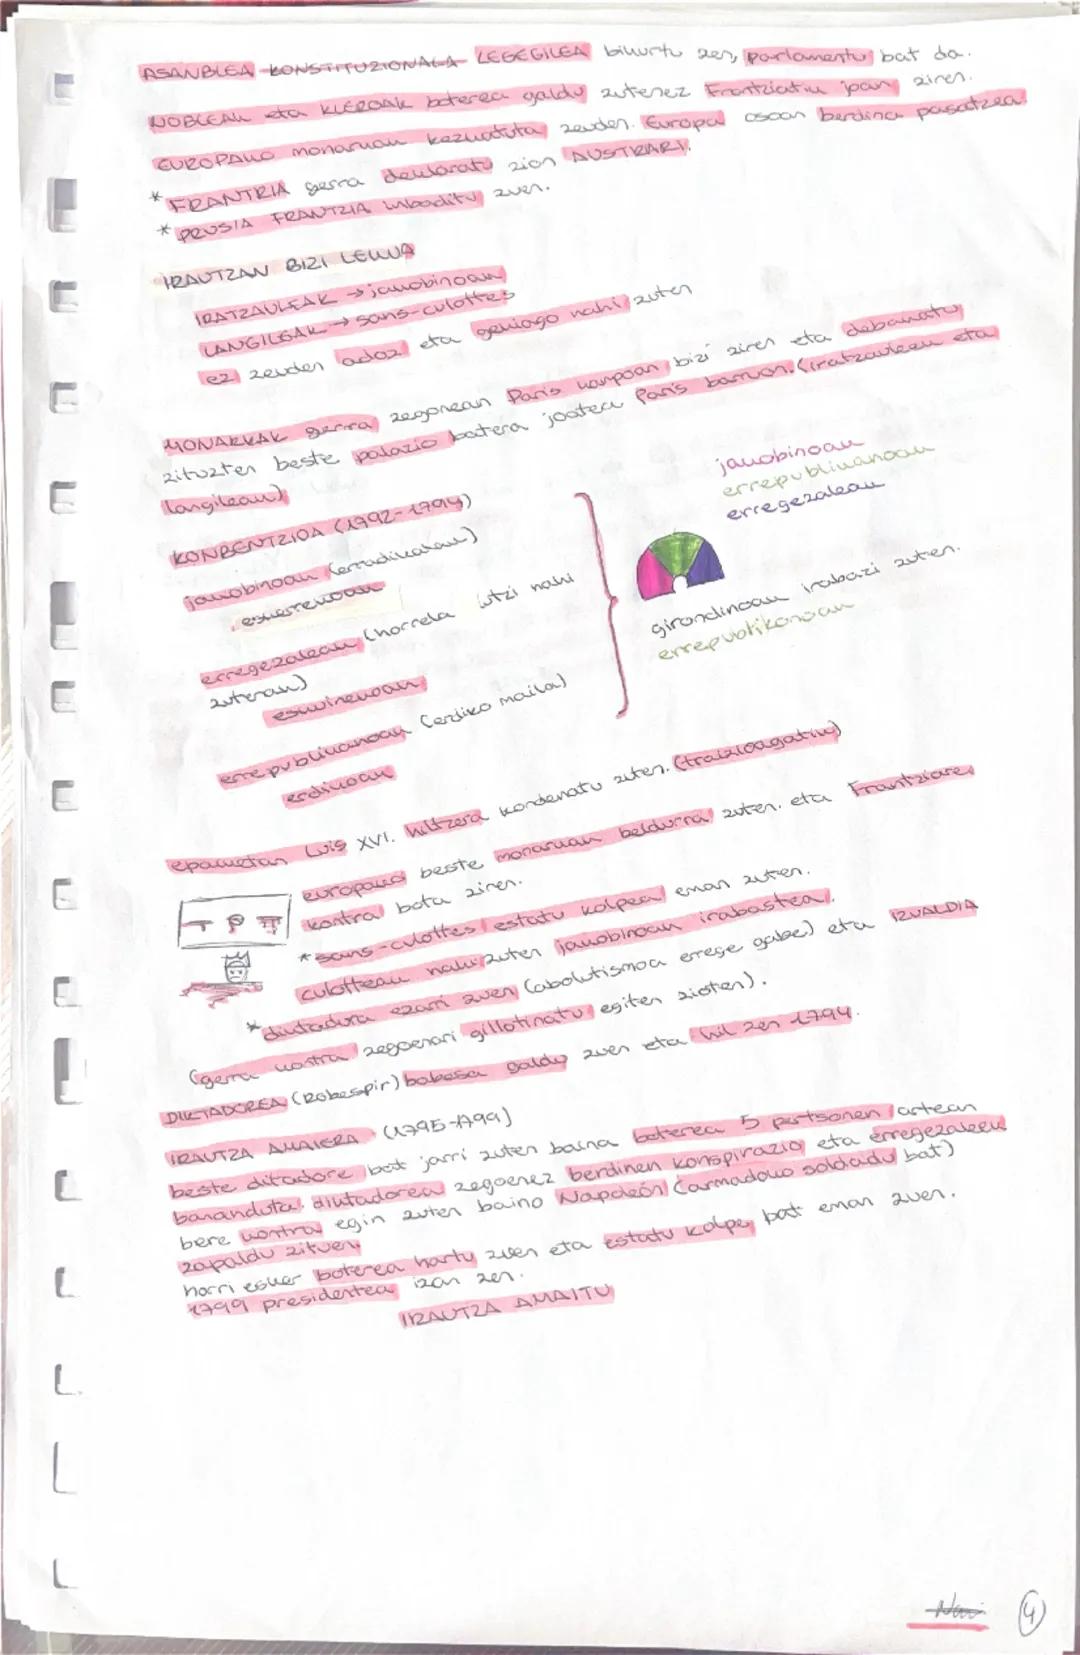 ASANBLEA KONSTITUZIONALA LEGEGILEA bihurtu zen, parlamentu bat da.
NOBLEAK eta KLEROAK boterea galdu zutenez Frantziatik joan ziren.
EUROPAKO monarkak kezkatuta zeuden. Europa osoan berdina pasatzea
* FRANTRIA gerra deklaratu zion AUSTRIARI.
* PRUSIA FRANTZIA inbaditu zuen.
IRAUTZAN BIZI LEKUA
IRATZAULEAK → jakobinoak
LANGILEAK → sans-culottes
ez zeuden ados eta gehiago nahi zuten
MONARKAK gerra zegonean Paris kanpoan bizi ziren eta debakatu
zituzten beste palazio batera joatea Paris barruan. (iratzauleak eta
langileak)
KONBENTZIOA (1792-1794)
jakobinoak (erradikalak)
eskerrekoak
erregezaleak (horrela utzi nahi
zuteran)
eskuinekoak
errepublikanoak (erdiko maila)
erdikoak
jakobinoak
errepublikanoak
erregezaleak
girondinoak irabazi zuten.
errepublikanoak
epaiketan Luis XVI. hiltzera kondenatu zuten. (traizioagatik)
europako beste monarkak beldurra zuten. eta Frantziaren
kontra bota ziren.
* sans-culottes estatu kolpea eman zuten.
culotteak nahi zuten jakobinoak irabastea.
* diktadura ezarri zuen (abolutismoa errege gabe) eta IZUALDIA
(gerra kontra zegoenari gillotinatu egiten zioten).
DIKTADOREA (Robespir) babesa galdu zuen eta hil zen 1794.
IRAUTZA AMAIERA (1795-1799)
beste ditadore bat jarri zuten baina boterea 5 pertsonen artean
bananduta. diktadorea zegoenez berdinen konspirazio eta erregezaleek
bere kontra egin zuten baino Napoleón (armadako soldadu bat)
zapaldu zituen.
horri esker boterea hartu zuen eta estatu kolpe bat eman zuen.
1799 presidentea izan zen.
IRAUTZA AMAITU
4